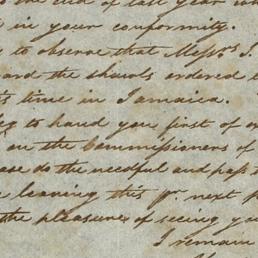 to the end of last year
in your conformity.
to observe that Messrs. I.
and the shawls ordered
time in Jamaica.
to hand you first of
on the Commissioners of
do the needful and pass
leaving this pr. next
the pleasure of seeing you
I remain